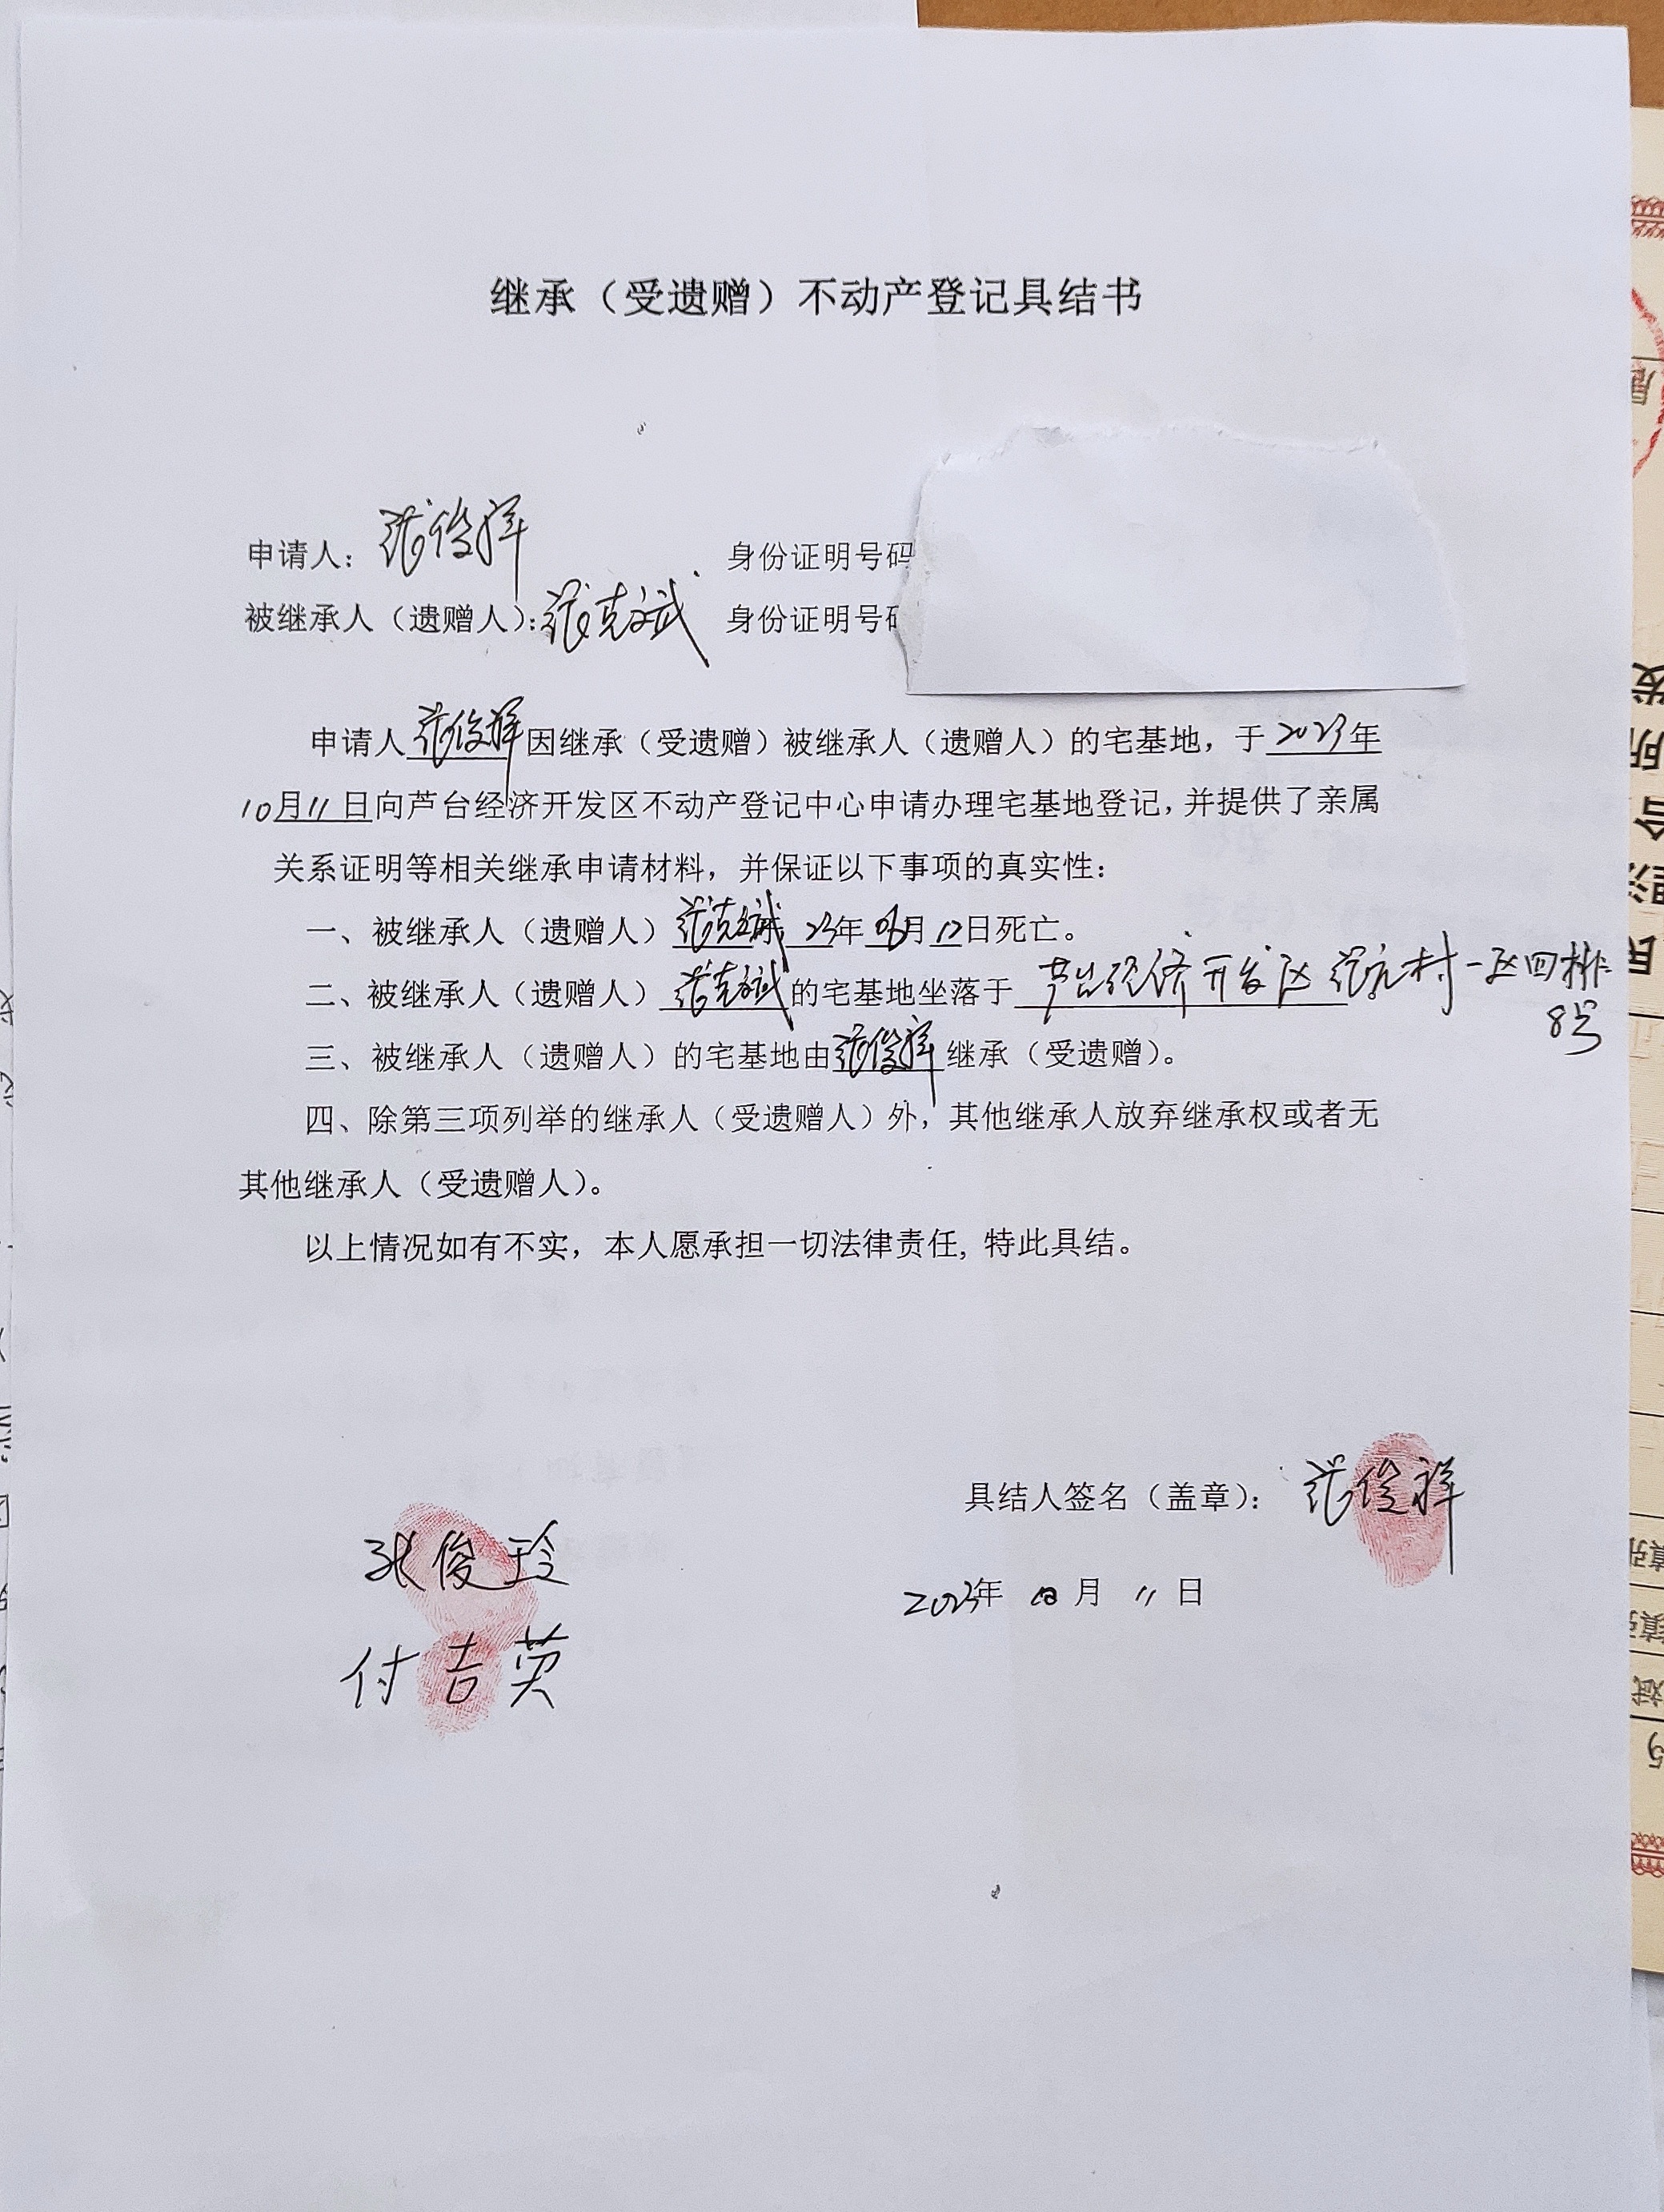 继承（受遗赠）不动产登记具结书
申请人：张俊祥 身份证明号码
被继承人（遗赠人）：张克斌 身份证明号码
申请人张俊祥因继承（受遗赠）被继承人（遗赠人）的宅基地，于2023年
10月11日向芦台经济开发区不动产登记中心申请办理宅基地登记，并提供了亲属
关系证明等相关继承申请材料，并保证以下事项的真实性：
一、被继承人（遗赠人）张克斌 23年06月12日死亡。
二、被继承人（遗赠人）张克斌的宅基地坐落于芦台经济开发区张广村一区四排
8号
三、被继承人（遗赠人）的宅基地由张俊祥继承（受遗赠）。
四、除第三项列举的继承人（受遗赠人）外，其他继承人放弃继承权或者无
其他继承人（受遗赠人）。
以上情况如有不实，本人愿承担一切法律责任,特此具结。
具结人签名（盖章）：张俊祥
张俊玲
2023年 10月 11日
付吉英